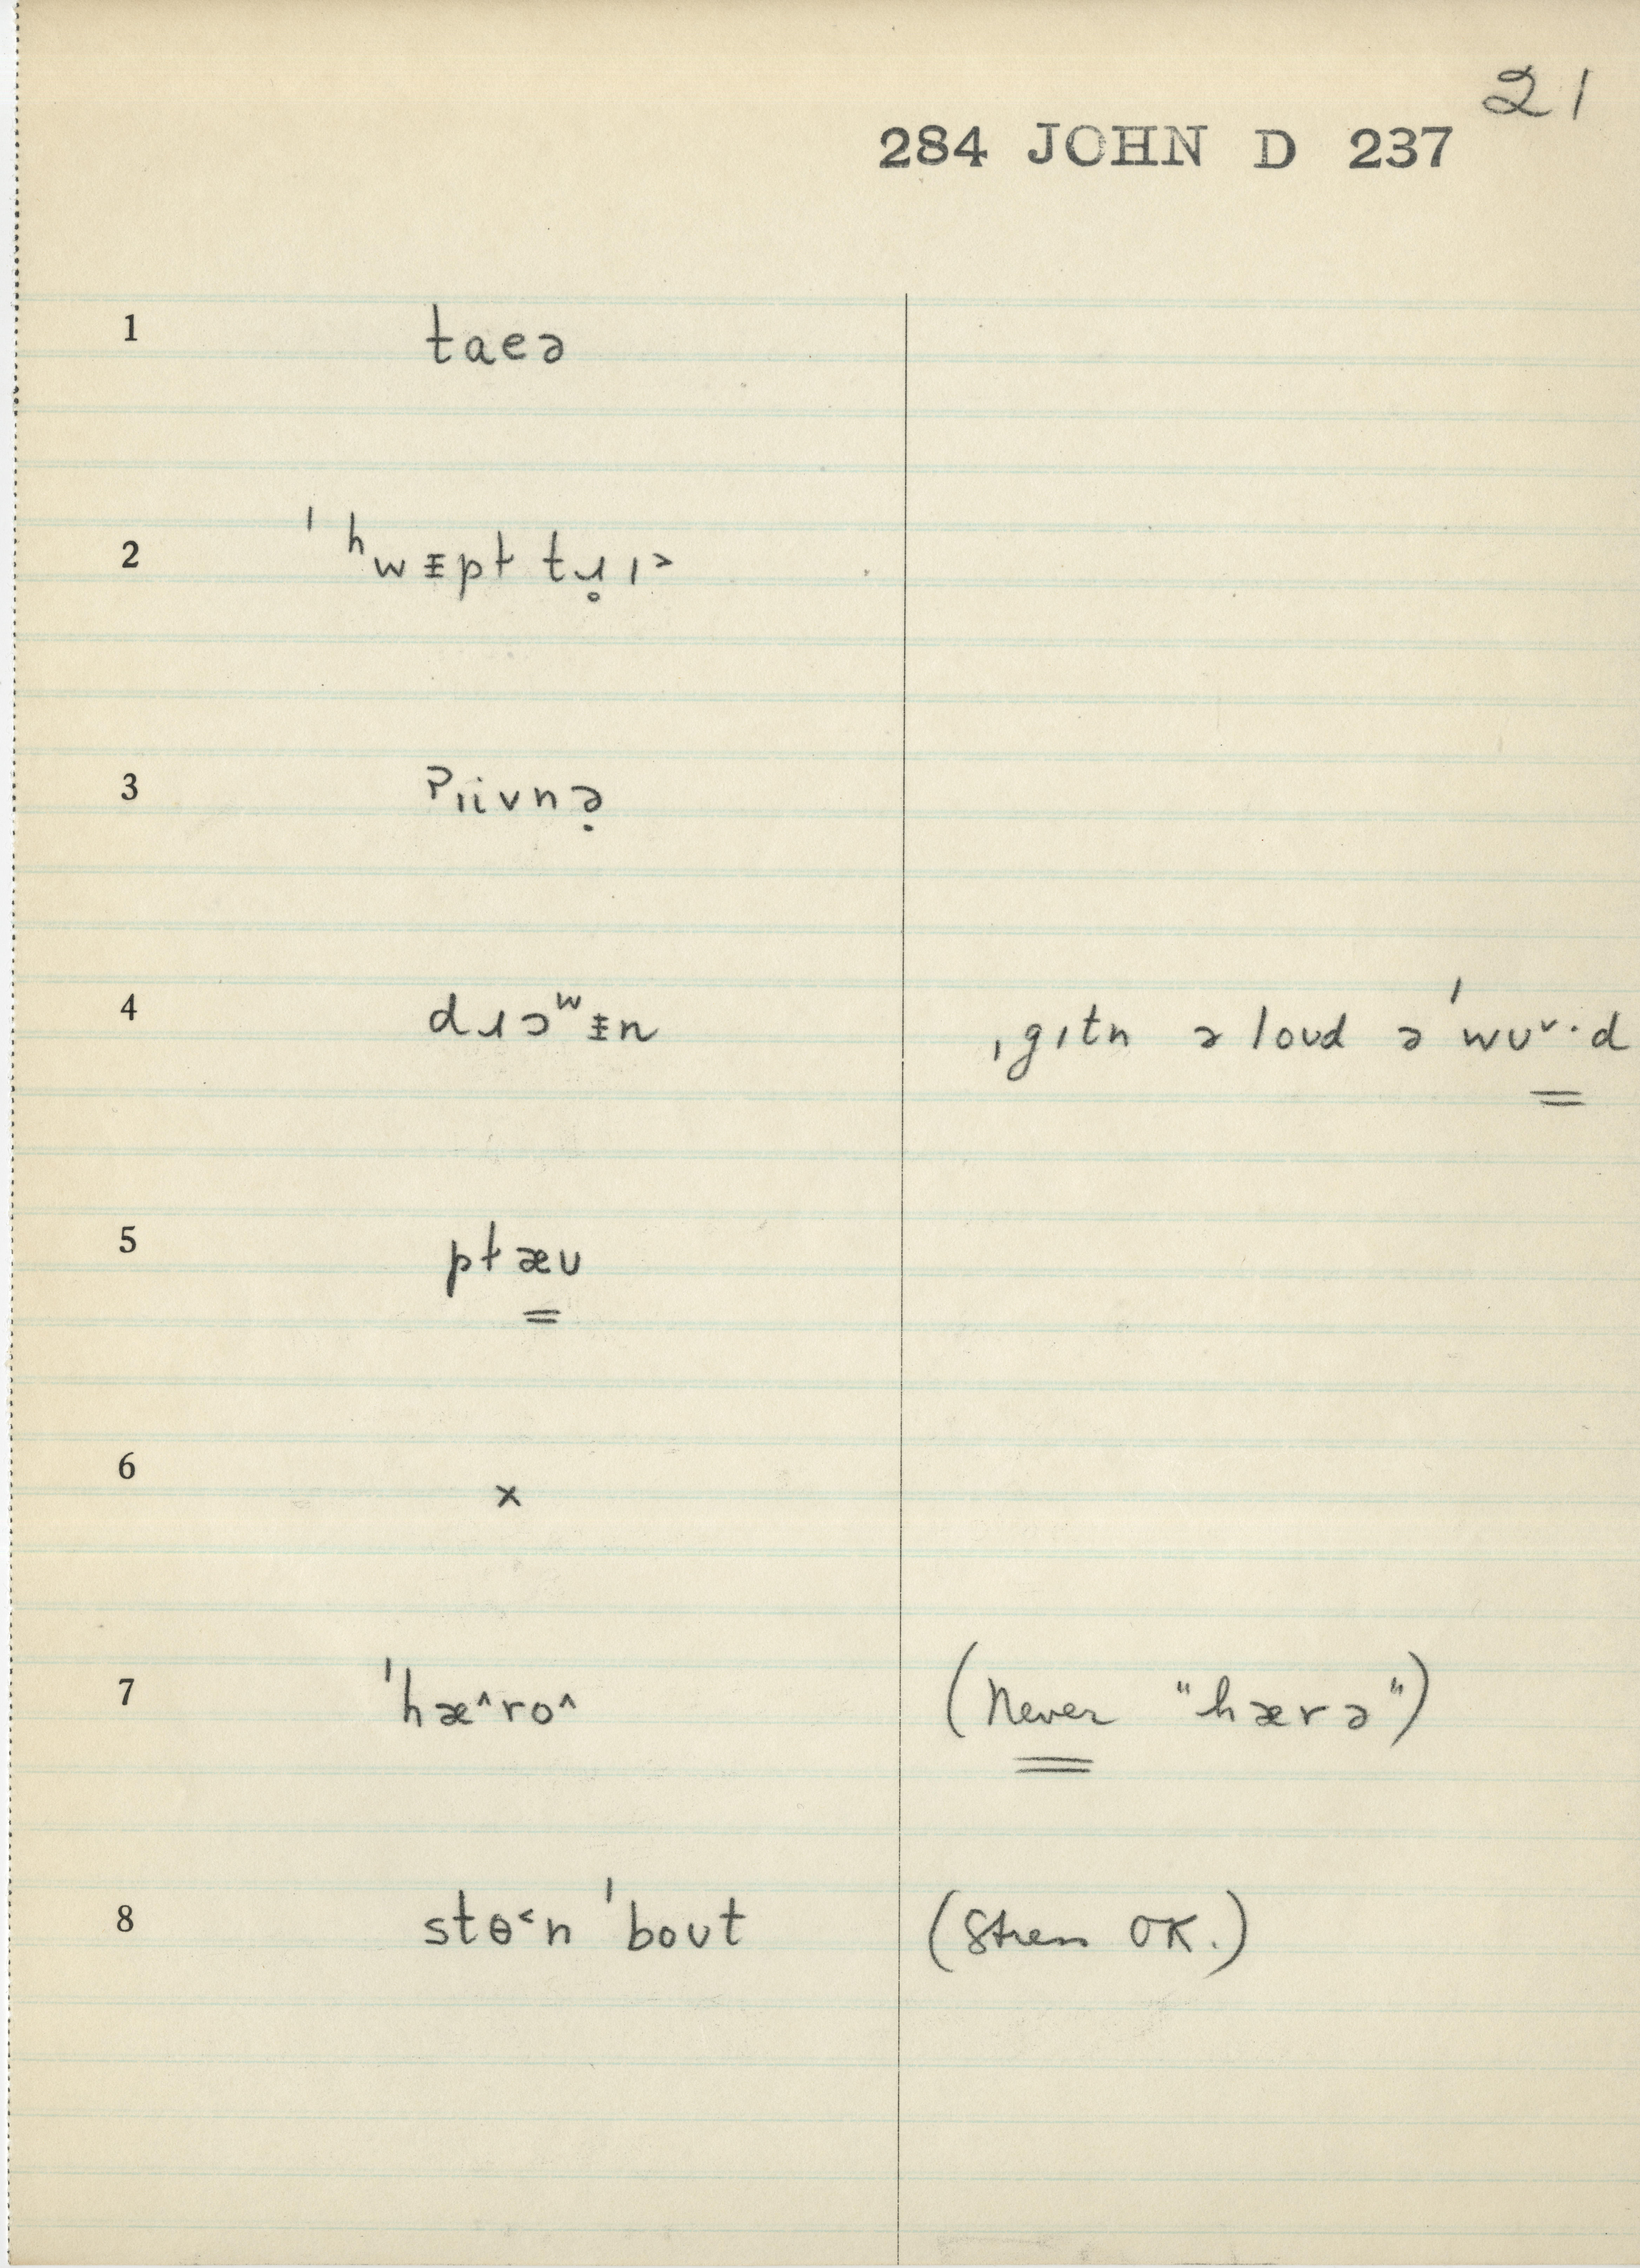 21
284 JOHN D 237
1 taeə
2 ˈʰwᵻpɫ tɹ̥ɪ˃
3 ʔɪivnə̣
4 dɹɔʷᵻn ˌgɪtn ə loʊd ə ˈwʊ˅·d
5 pɫæʊ
6 x
7 ˈhæ^ro^ (Never "hærə")
8 stɵ˂n ˈboʊt (Stress OK.)